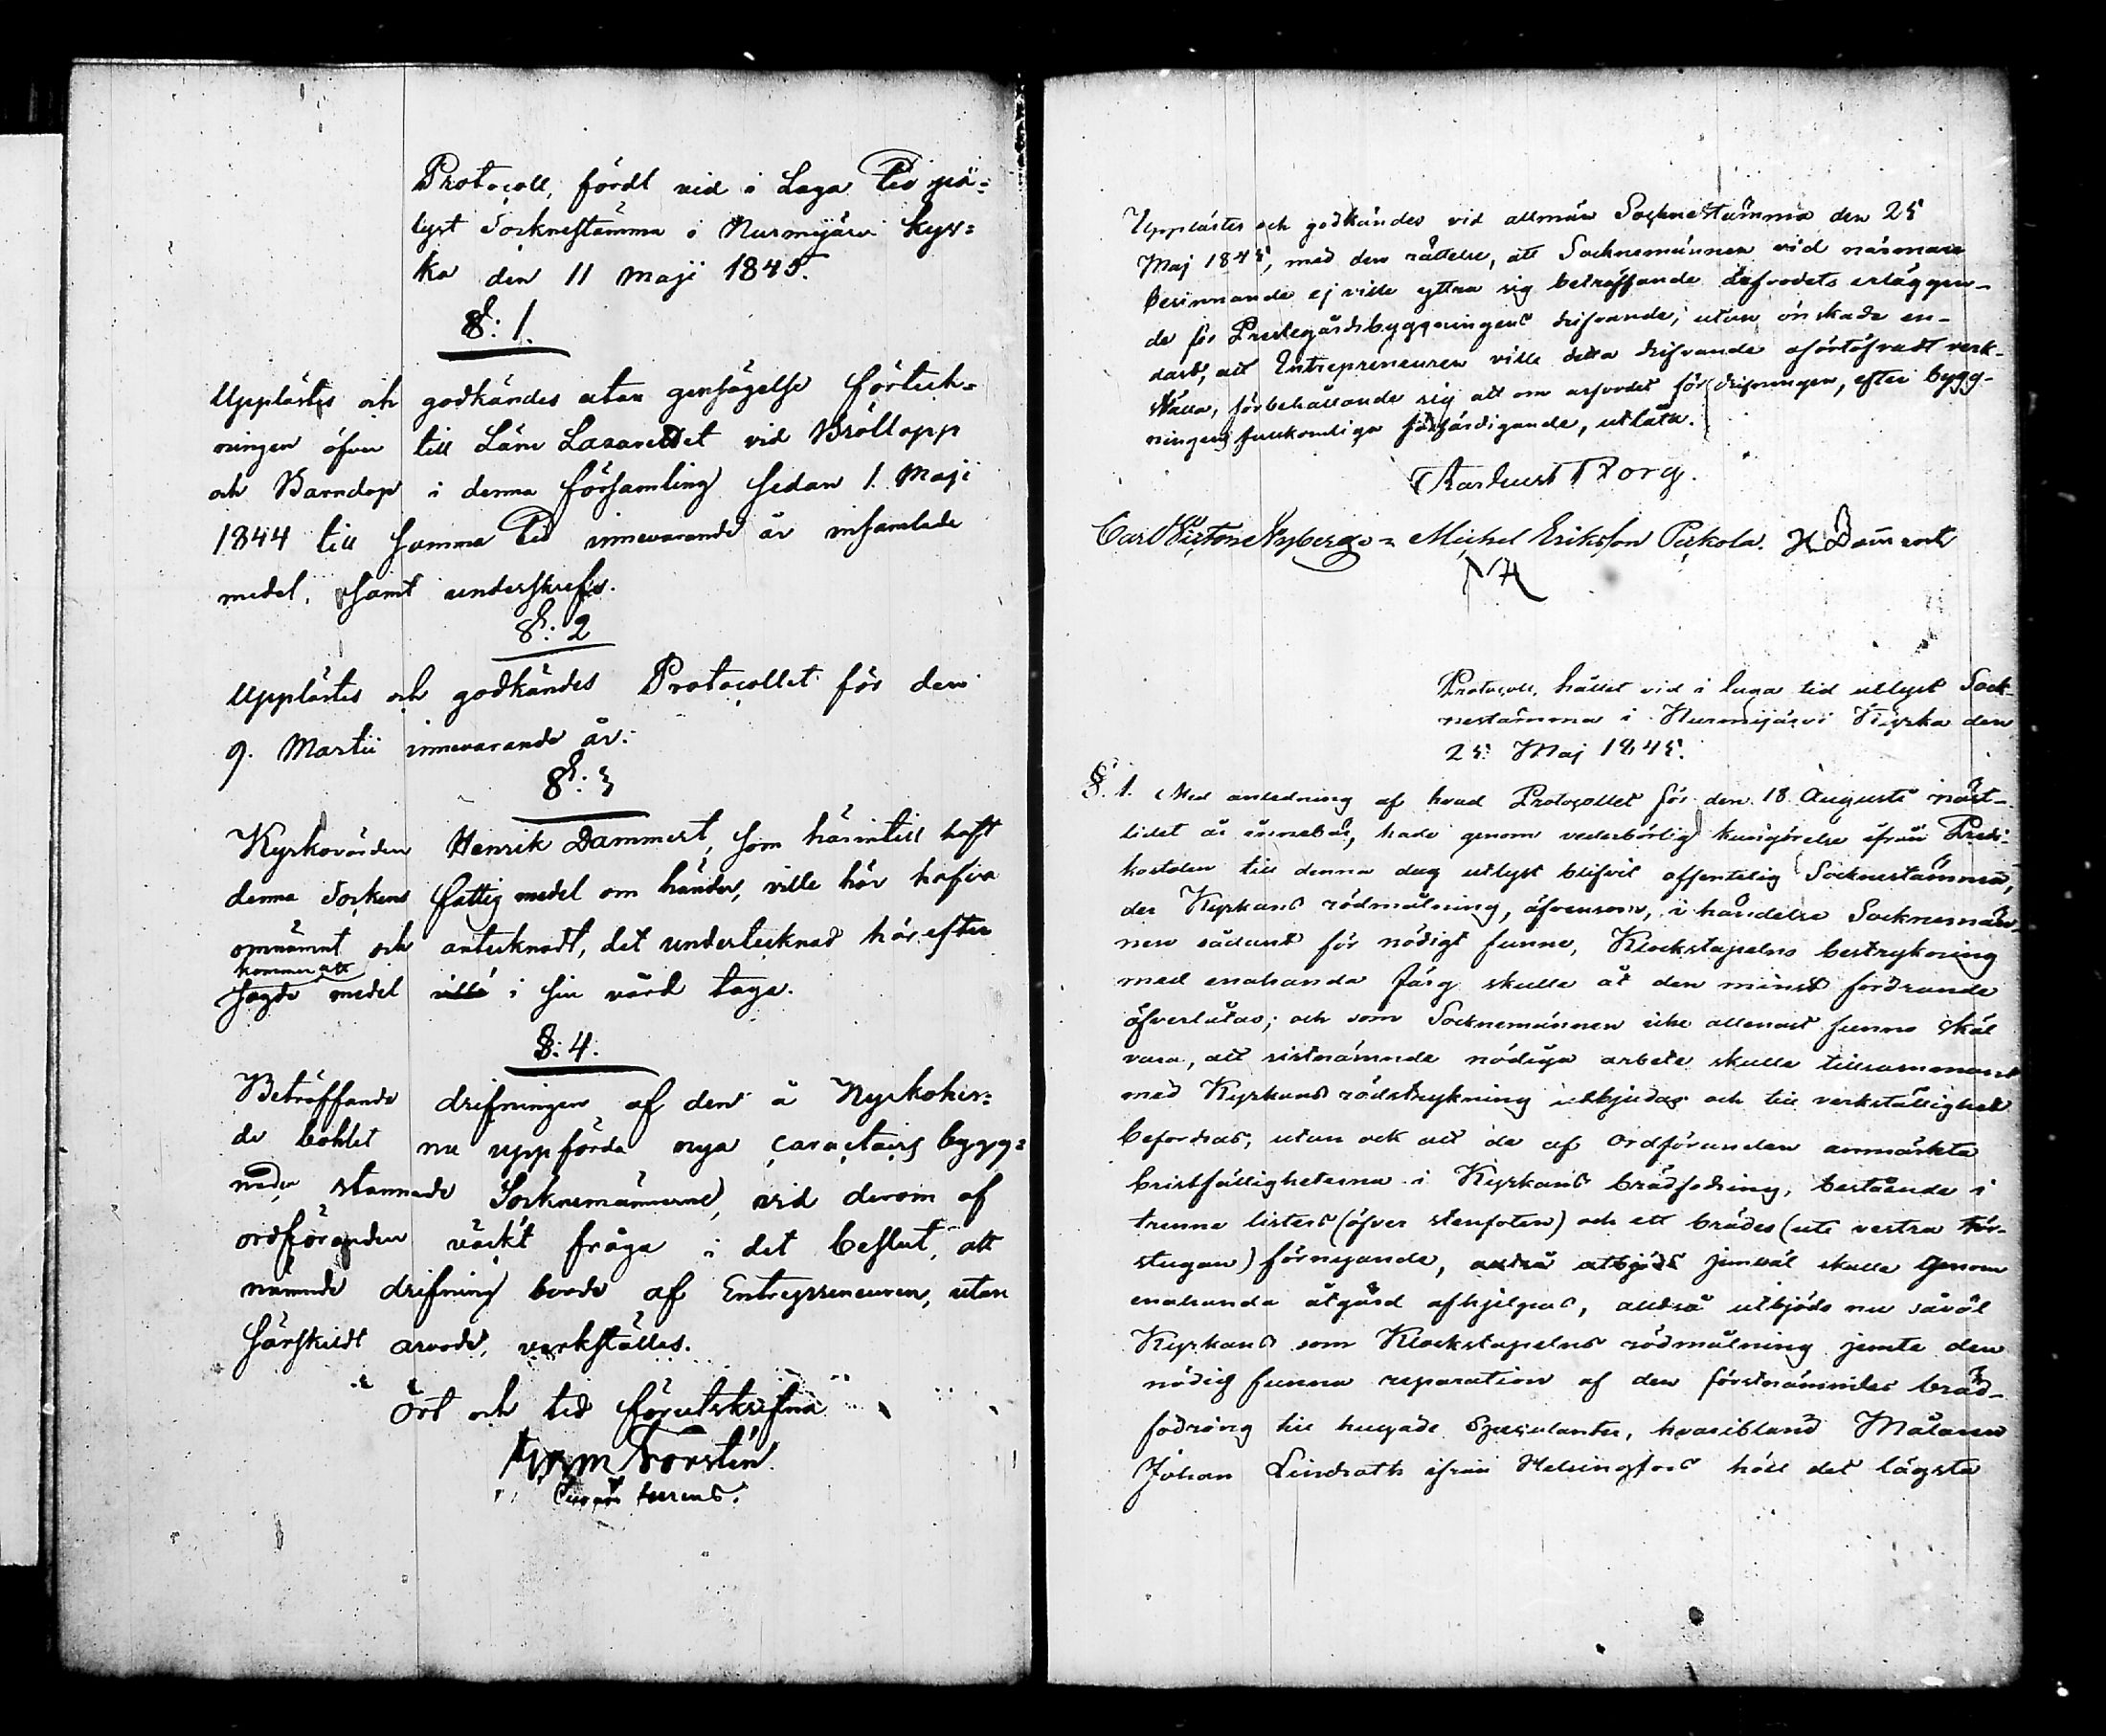 Protocoll, fördt vid i Laga Tid på-
lyst Socknestämma i Nurmijärvi Kyr-
ka den 11 Maji 1845.
§: 1.
Upplästes och godkändes utan gensägelse förteck-
ningen öfver till Läns Lazarettet vid Bröllopp
och Barndop i denna församling sedan 1. Maji
1844 till samma Tid innevarande år insamlade
medel, samt underskrefs.
§: 2
Upplästes och godkändes Protocollet för den
9. Martii innevarande år.
§: 3
Kyrkovärden Henrik Dammert, som härintill haft
denna Sockens fattig medel om händer, ville här hafva
omnämnt och antecknadt, det undertecknad härefter
kommer att
sagde medel ville i sin vård taga.
§. 4.
Beträffande drifningen af den å Kyrkoher-
de bohlet nu uppförda nya caractairs bygg-
naden stannade Socknemännerne, vid derom af
ordföranden väckt fråga i det beslut, att
nämnde drifning borde af Entrepreneuren, utan
särskildt arvode, verkställas.
Ort och tid förutskrifna
Forstén
Upplästes och godkändes vid allmän Socknestämma den 25
Maj 1845, med den rättelse, att Socknemännen vid närmare
besinnande ej ville yttra sig beträffande arfvodets erläggan-
de för Prestegårdsbyggningens drifvande, utan önskade en-
dast, att Entrepreneuren ville detta drifvande oförtöfvadt verk-
ställa, förbehållande sig att om arfvodet för drifningen, efter bygg-
ningens fullkomliga färdigande, utlåta.
Borg.
Carl Victor Nyberg Michel Eriksson Perkola. H Dammert
Protocoll, hållet vid i laga tid utlyst Sock-
nestämma i Nurmijärvi Kyrka den
25 Maj 1845.
§. 1. Med anledning af hvad Protocollet för den 18 Augusti näst-
lidet år innebär, hade genom vederbörlig kungörelse ifrån Predi-
kostolen till denna dag utlyst blifvit offentelig Socknestämma,
der Kyrkans rödmålning, äfvensom, i händelse Socknemän-
nen sådant för nödigt funne, Klockstapelns bestrykning
med enahanda färg skulle åt den minst fordrande
öfverlåtas; och som Socknemännen icke allenast funno skäl
vara, att sistnämnde nödiga arbete skulle tillsammans
med Kyrkans rödstrykning utbjudas och till verkställighet
befordras, utan ock att de af Ordföranden anmärkta
bristfälligheterna i Kyrkans brädfodring, bestående i
trenne listers (öfver stenfoten) och ett brädes (ute vestra tor-
stugan) förnyande, altså utbjöds jemväl skulle genom
enahanda åtgärd afhjelpas, alltså utbjöds nu såväl
Kyrkans som Klockstapelns rödmålning jemte den
nödig funna reparation af den förstnämndes bräd-
fodring till hugade Speculanter, hvaribland Målaren
Johan Lindroth ifrån Helsingfors höll det lägsta